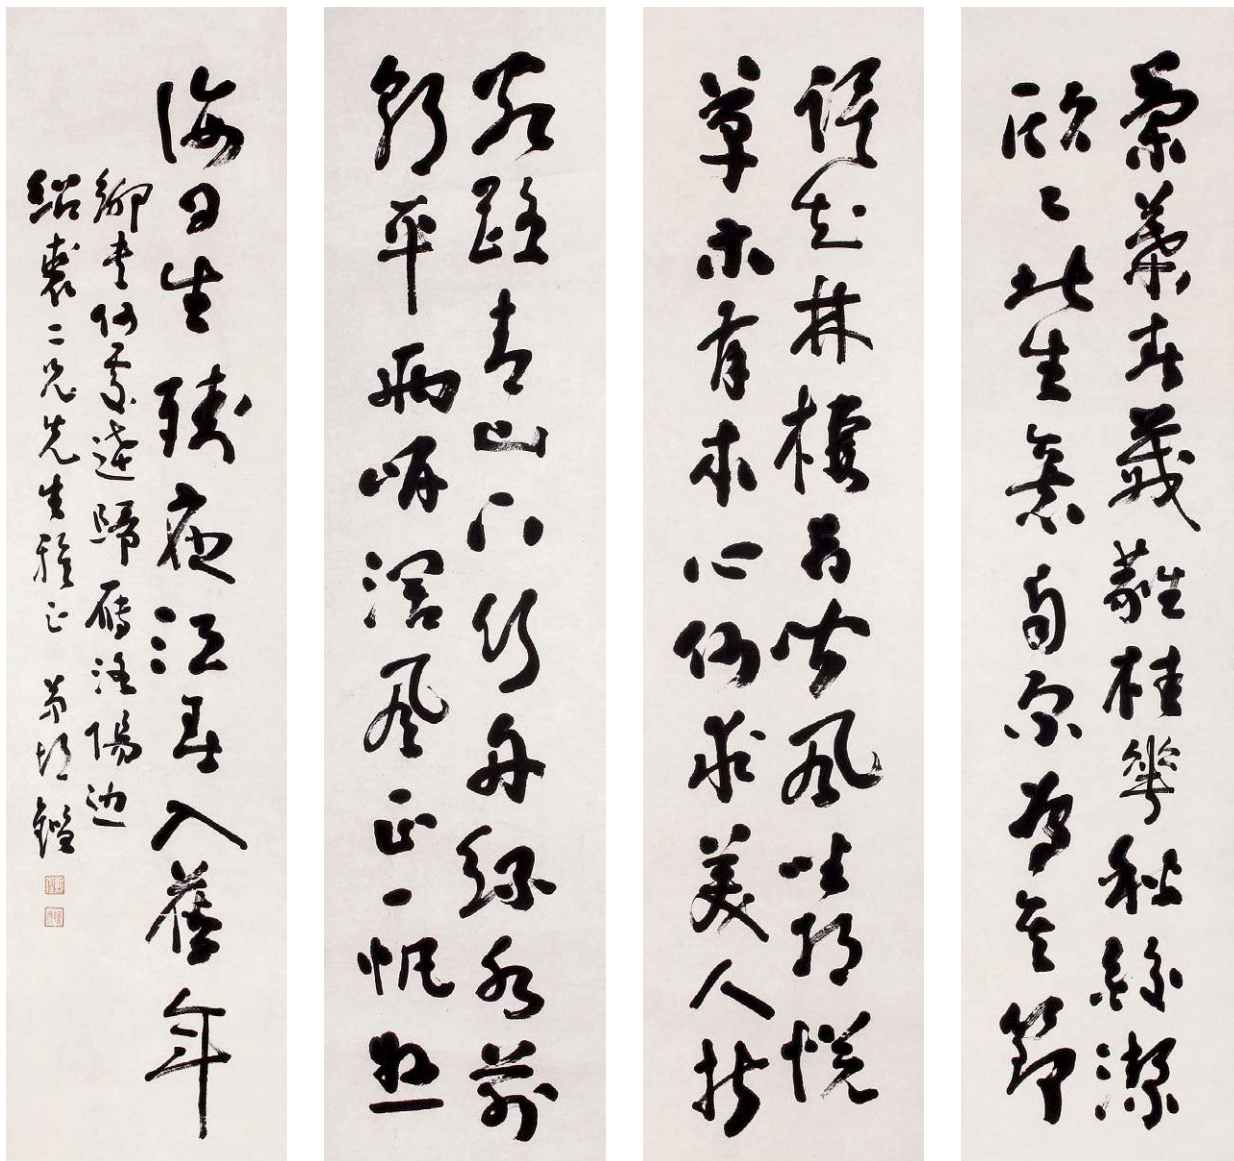 蘭葉春葳蕤桂華秋皎潔
欣欣此生意自尔為佳節
誰知林棲者聞風坐相悅
草木有本心何求美人折
客路青山下行舟綠水前
潮平兩岸闊風正一帆懸
海日生殘夜江春入舊年
鄉書何處達歸雁洛陽邊
紹裘二兄先生雅正 弟 鑑